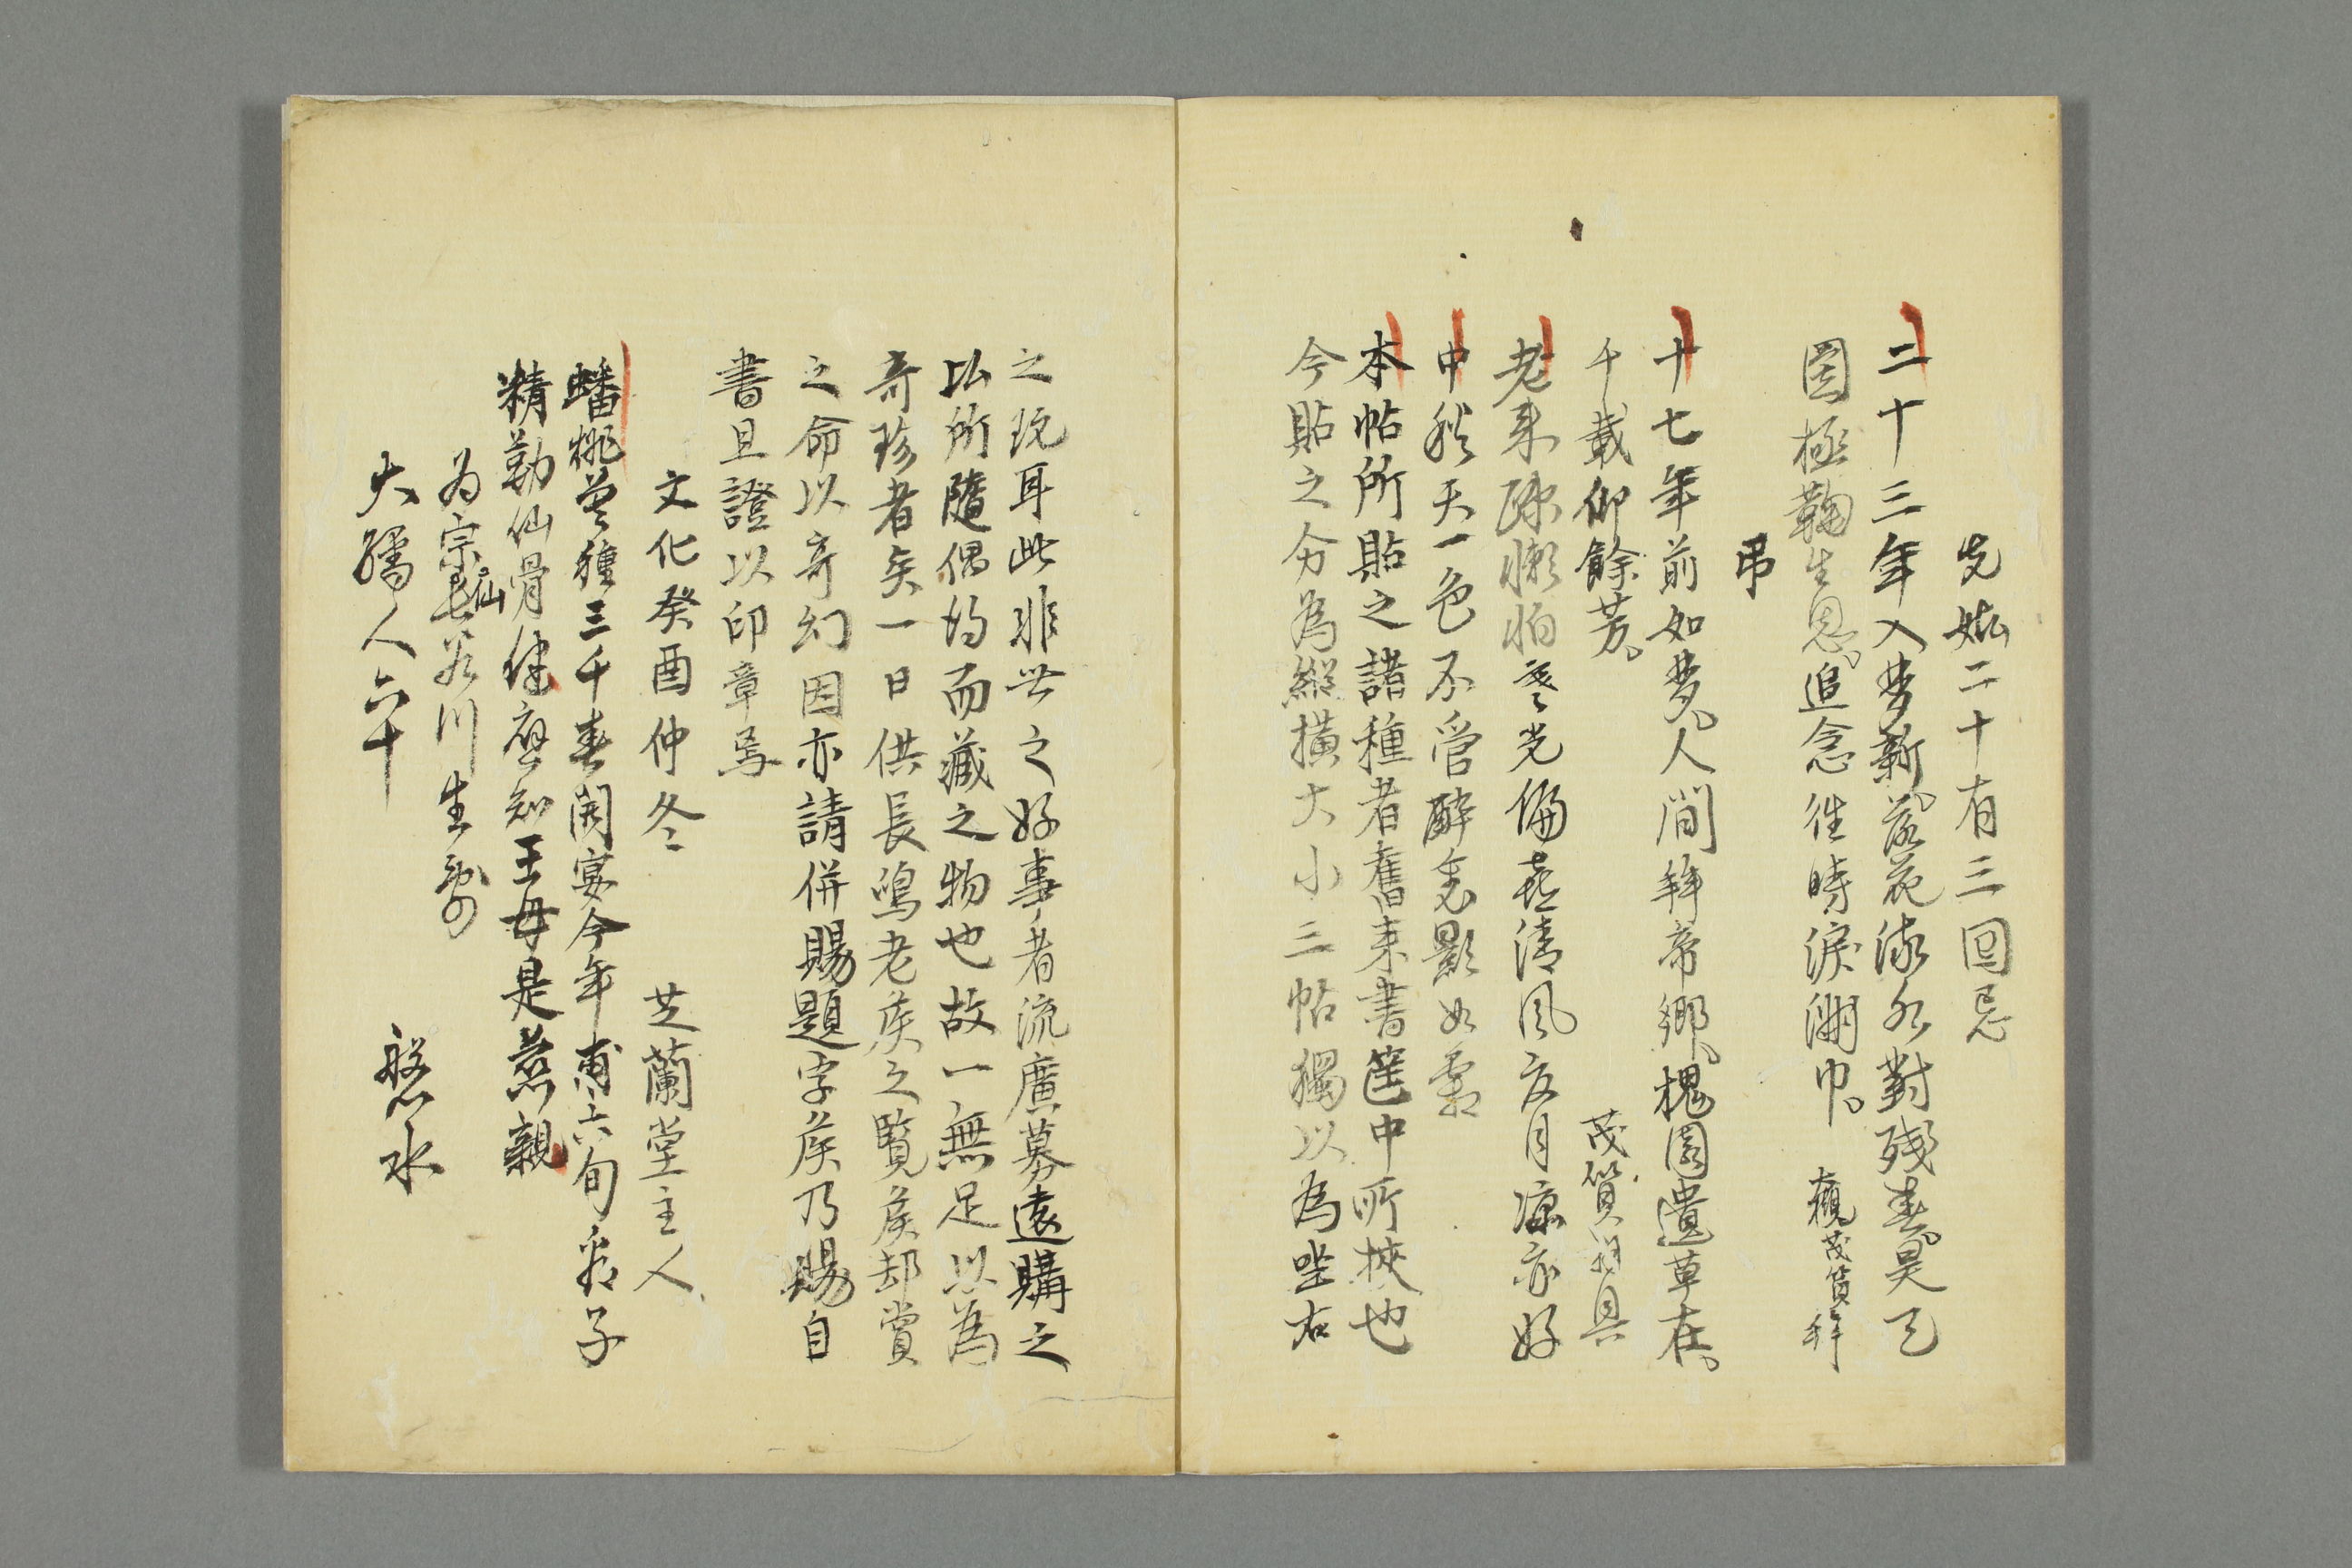 先妣二十有三回忌
二十三年入夢新落花流水對殘春昊天
罔極鞠生恩追念往時淚濕巾 茂質拜
弔
十七年前如夢人間拜帝鄉槐園遺草在
千載仰餘芳 茂質拜具
老来疎懶怕寒光偏喜清風夜月凉亦好
中秋天一色不管醉兎影如霜
本帖所貼之諸種者舊来書筐中所挾也
今貼之分為縱橫大小三帖獨以為坐右
之玩耳此非世之好事者流廣募遠購之
比所隨偶得而藏之物也故一無足以為
奇珍者矣一日供長鳴老矦之覽矦却賞
之命以奇幻因亦請併賜題字矦乃賜自
書且證以印章焉
文化癸酉仲冬 芝蘭堂主人
蟠桃曽種三千春開宴今年甫六旬
精勤仙骨健應知王母是慈親
為宗仙長谷川生
大人六十 磐水